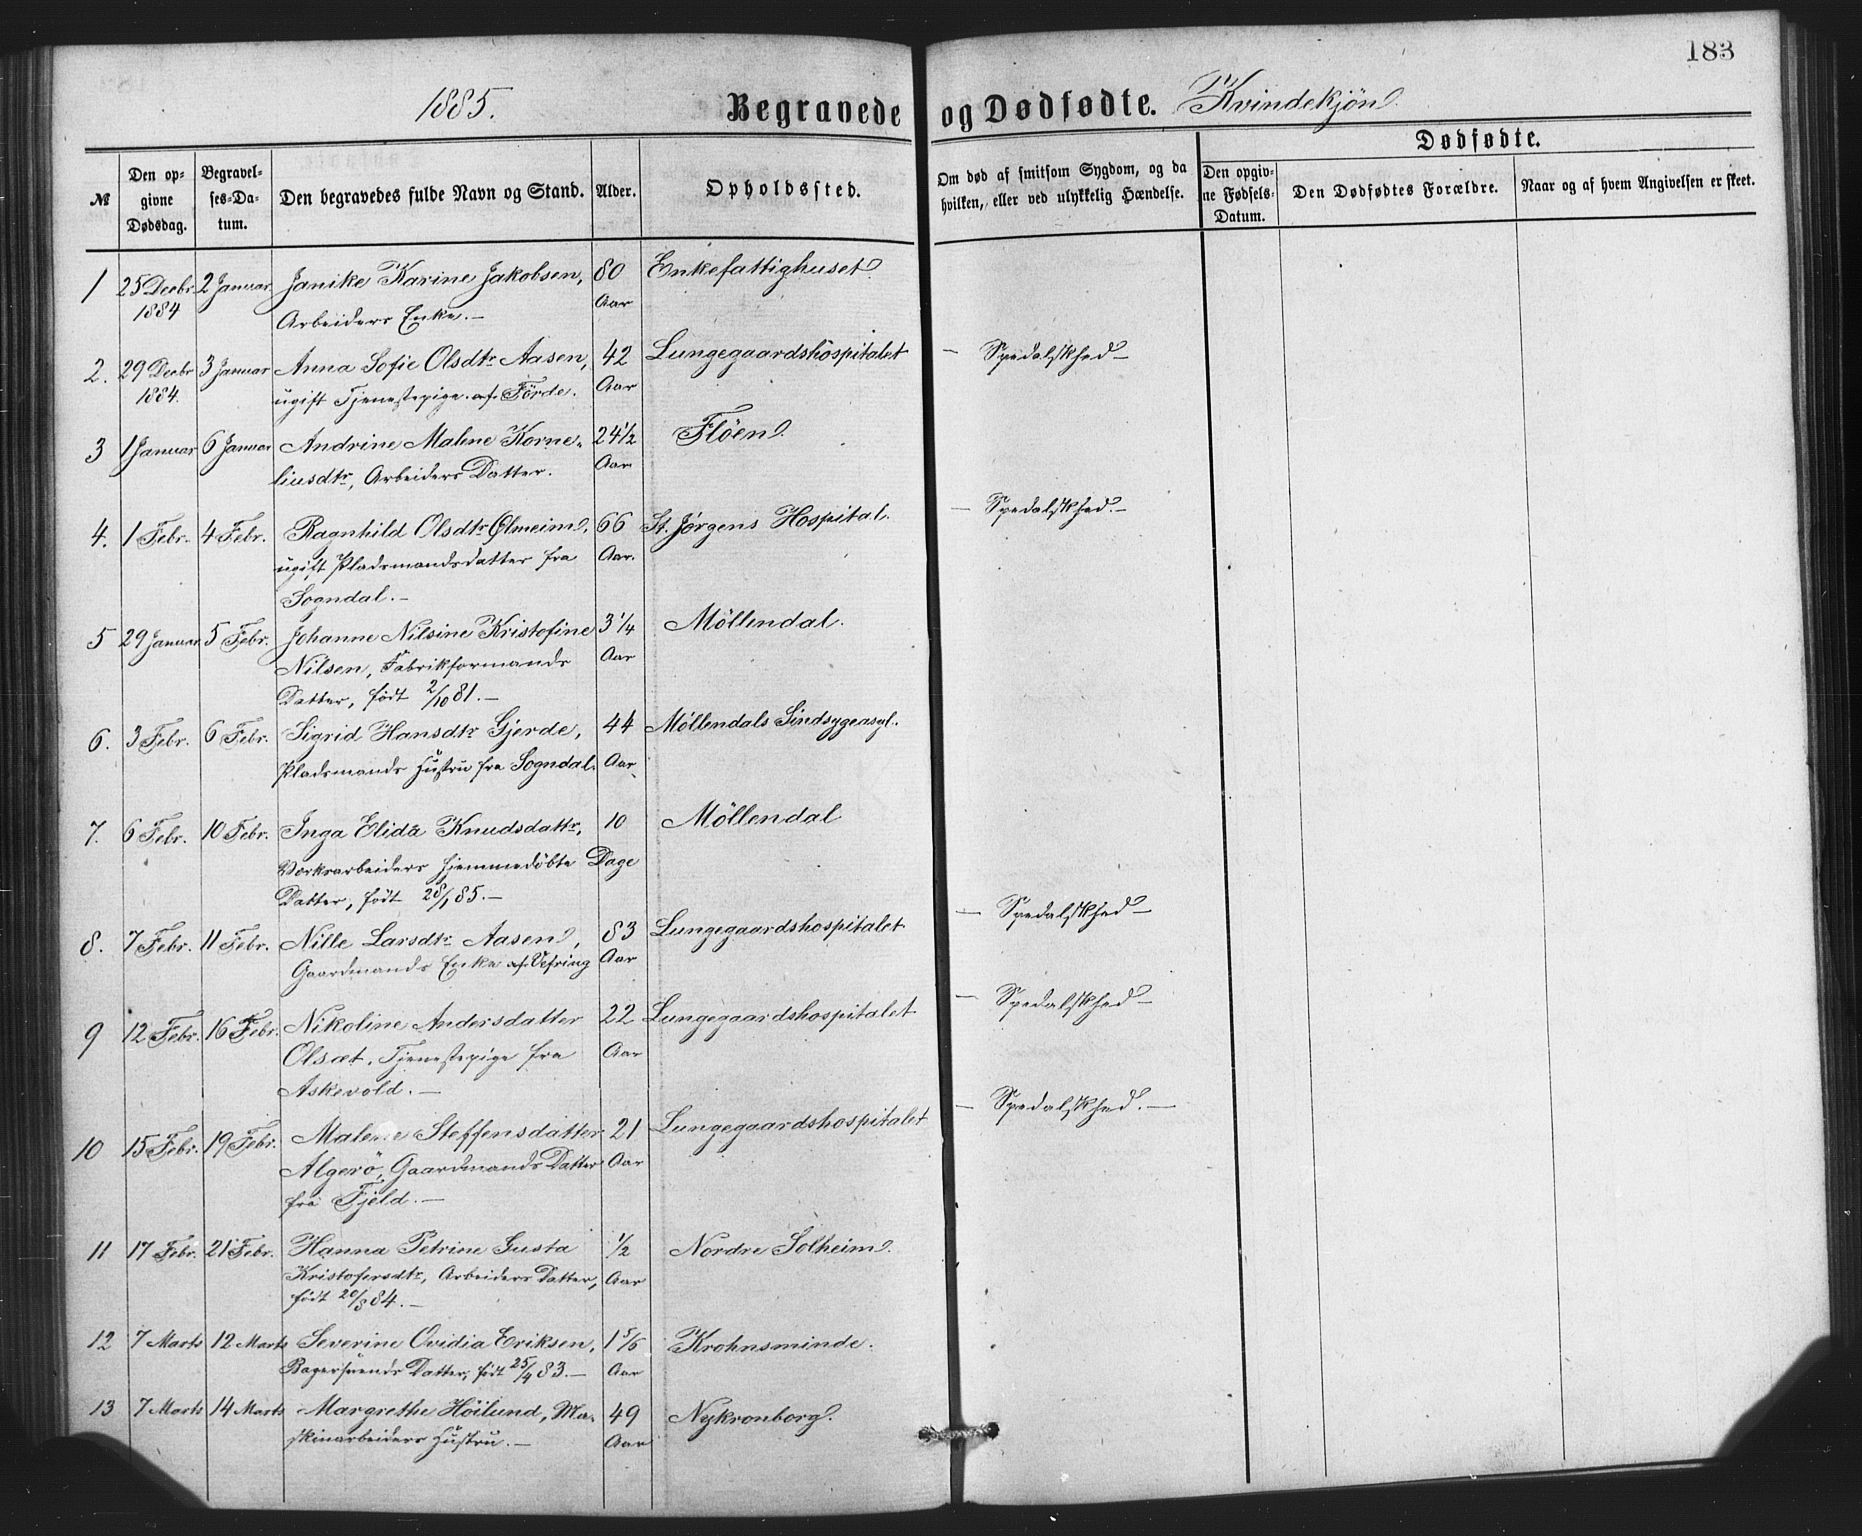 183
1885. Begravede og Dødfødte. Kvindekjøn.
№
Den opgivne Dødsdag.
Begravelses-Datum.
Den begravedes fulde Navn og Stand.
Alder.
Opholdssted.
Om død af smitsom Sygdom, og da hvilken, eller ved ulykkelig Hændelse.
Dødfødte.
Den opgivne Fødsels-Datum.
Den Dødfødtes Forældre.
Naar og af hvem Angivelsen er skeet.
1 25 Decbr. 2 Januar Janike Karine Jakobsen, 80 Enkefattighuset.
1884 Arbeiders Enke. — Aar
2. 29 Decbr 3 Januar Anna Sofie Olsdtr Aasen, 42 Lungegaardshospitalet — Spedalskhed —
1884. ugift Tjenestepige af Förde. Aar
3 1 Januar 6 Januar Andrine Malene Korne- 24 1/2 Flöen.
liusdtr, Arbeiders Datter. Aar
4. 1 Febr. 4 Febr. Ragnhild Olsdtr Ølmeim, 66 St. Jørgens Hospital. — Spedalskhed. —
ugift Pladsmandsdatter fra Aar.
Sogndal. —
5 29 Januar 5 Febr. Johanne Nilsine Kristofine 3 1/4 Möllendal.
Nilsen, Fabrikformands Aar
Datter, født 2/10 81. —
6. 3 Febr. 6 Febr. Sigrid Hansdtr Gjerde, 44 Møllendals Sindsygeasyl.
Pladsmands Hustru fra Sogndal. Aar.
7. 6 Febr. 10 Febr. Inga Elida Knudsdattr, 10 Möllendal
Værksarbeiders hjemmedöbte Dage
Datter, født 28/1 85. —
8. 7 Febr. 11 Febr. Nille Larsdtr Aasen, 83 Lungegaardshospitalet — Spedalskhed —
Gaardmands Enke af Vefring Aar
9 12 Febr. 16 Febr. Nikoline Andersdatter 22 Lungegaardshospitalet — Spedalskhed —
Olsæt, Tjenestepige fra Aar
Askevold. —
10 15 Febr. 19 Febr. Malene Steffensdatter 21 Lungegaardshospitalet — Spedalskhed. —
Algerö, Gaardmands Datter Aar
fra Fjeld. —
11 17 Febr. 21 Febr. Hanna Petrine Gusta 1/2 Nordre Solheim.
Kristofersdtr, Arbeiders Datter, Aar
født 20/8 84. —
12 7 Marts 12 Marts Severine Ovidia Eriksen, 1 5/6 Krohnsminde.
Bagersvends Datter, født 25/4 83. — Aar
13 7 Marts 14 Marts Margrethe Höilund, Ma- 49 Nykronborg.
skinarbeiders Hustru. — Aar